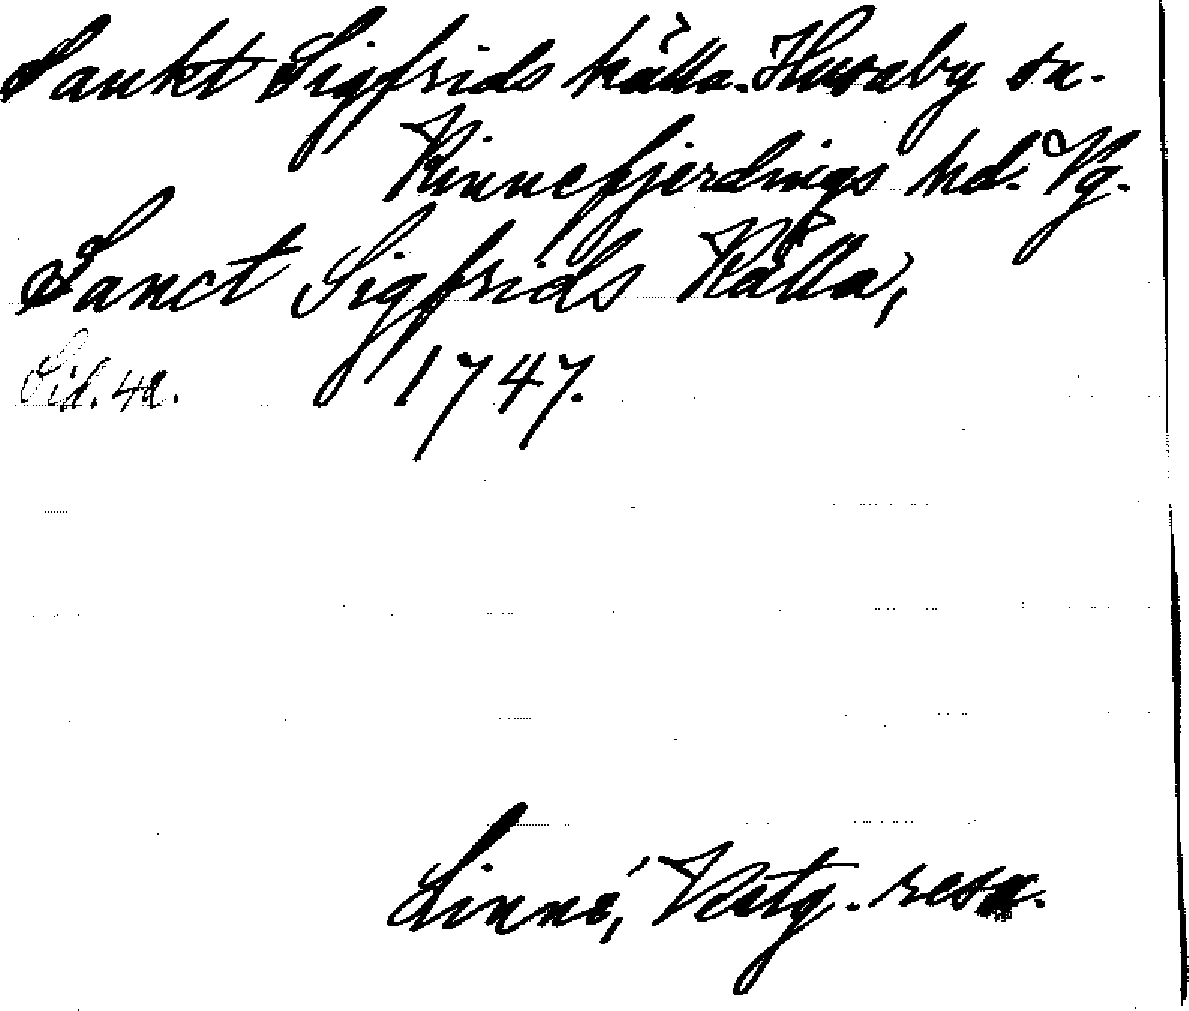 Sankt Sigfrids källa. Husaby sn.
Kinnefjerdings hd. Vg.
Sanct Sigfrids Källa,
Sid. 42. 1747.
Linné, Vestg. resa.